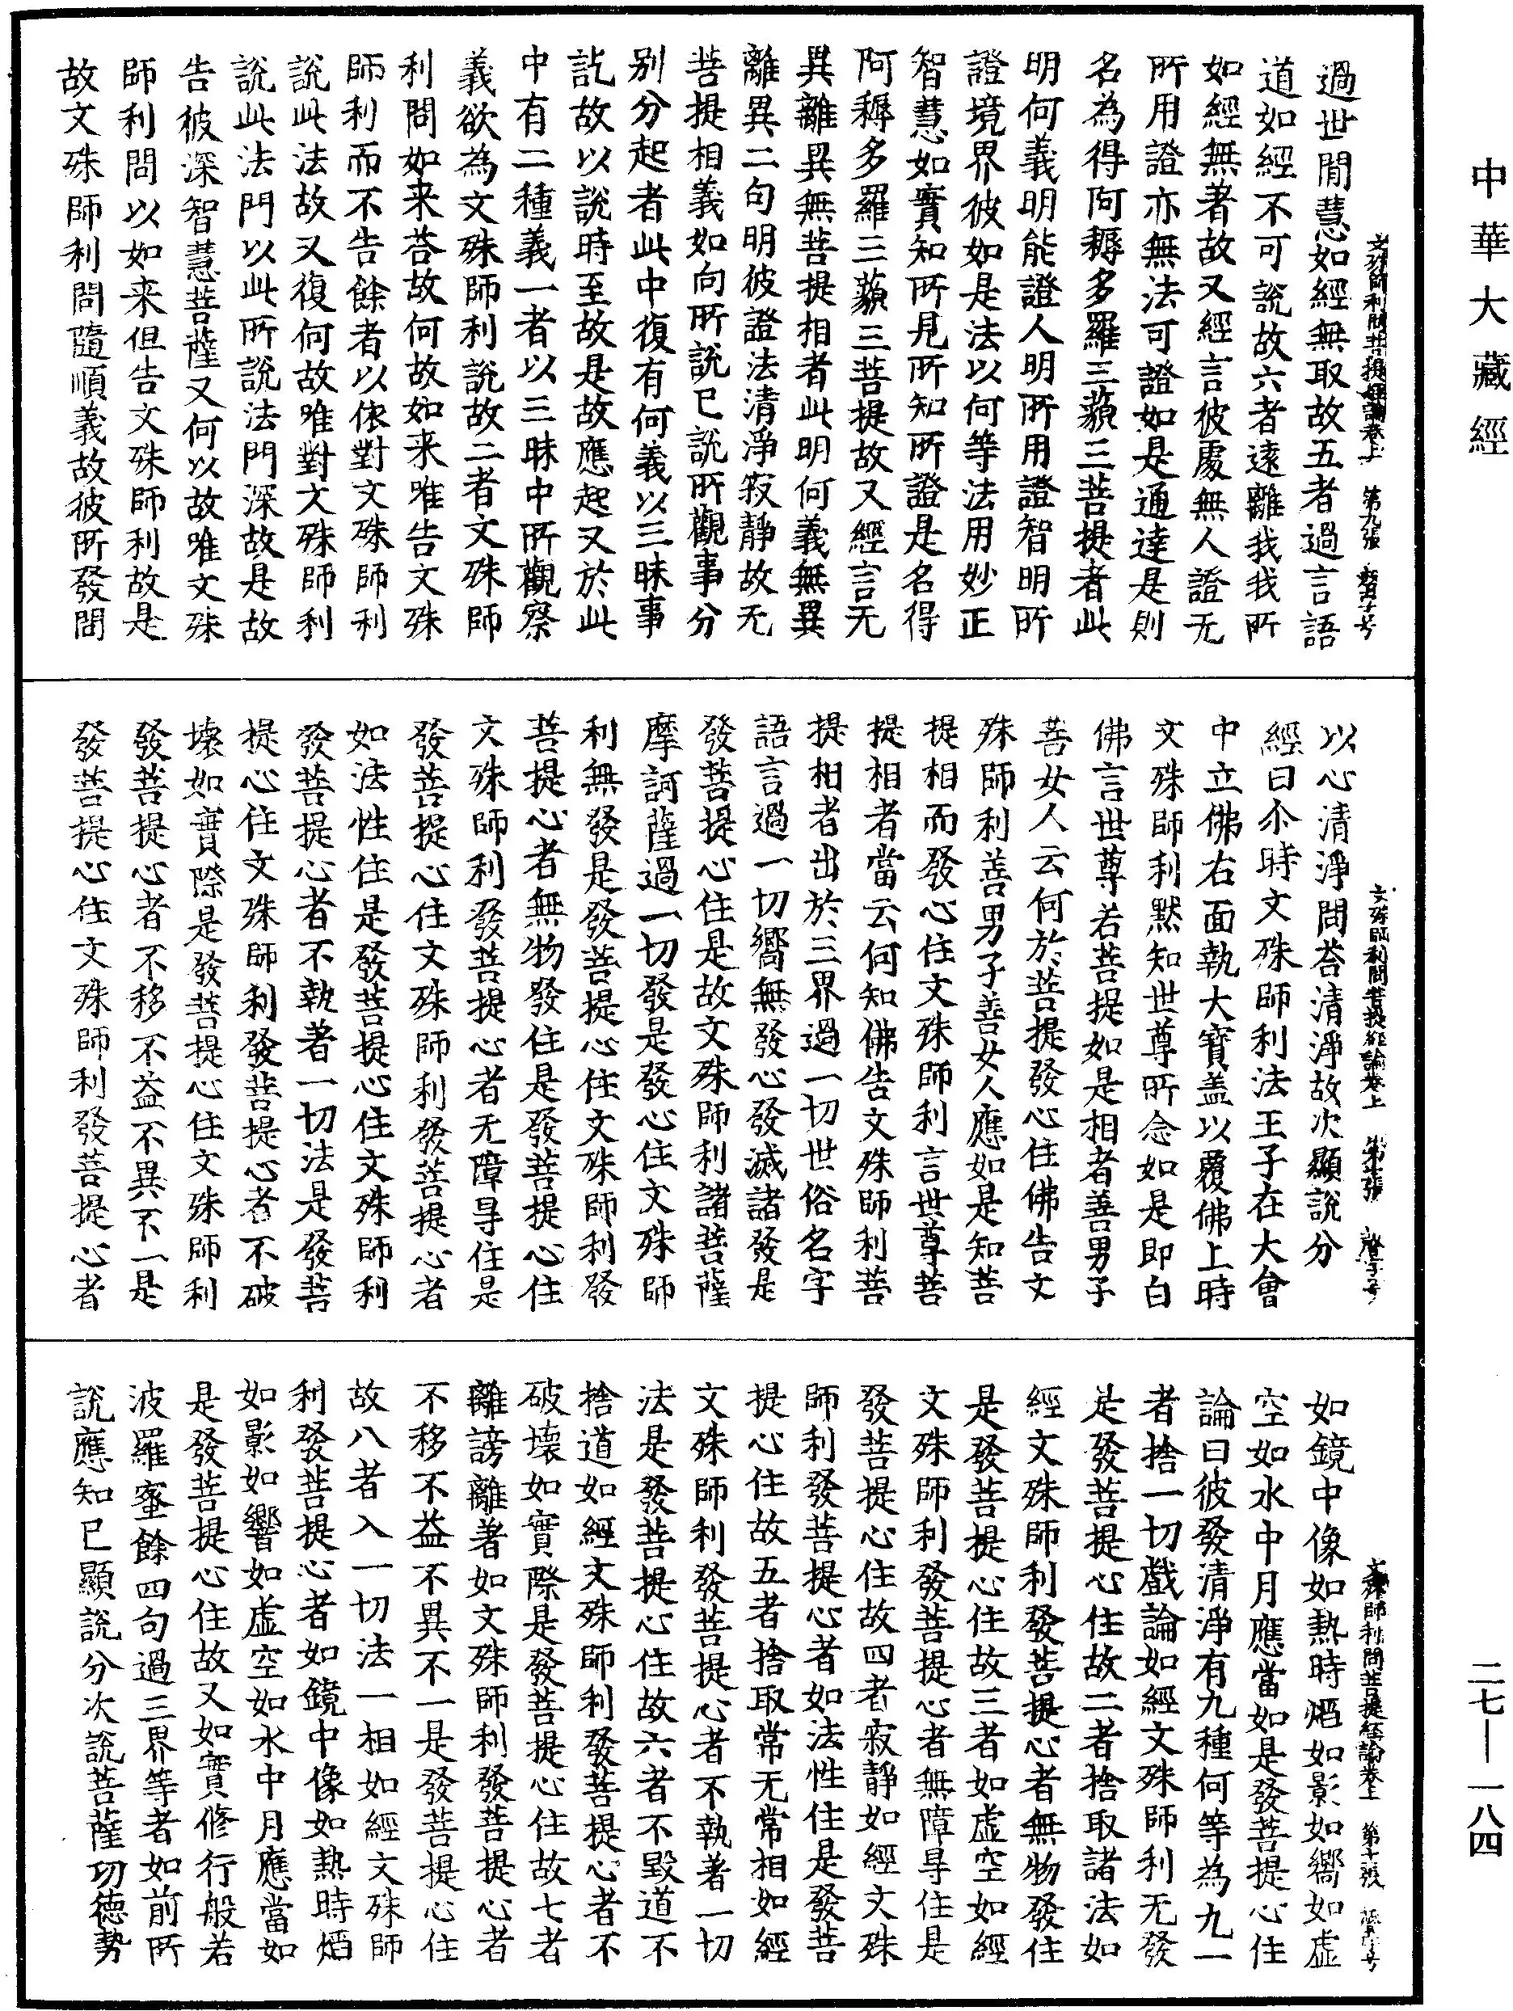 中華大藏經
二七—一八四
過世間慧如經無取故五者過言語
道如經不可說故六者遠離我我所
如經無著故又經言彼處無人證无
所用證亦無法可證如是通達是則
名為得阿耨多羅三藐三菩提者此
明何義明能證人明所用證智明所
證境界彼如是法以何等法用妙正
智慧如實知所見所知所證是名得
阿耨多羅三藐三菩提故又經言无
異離異無菩提相者此明何義無異
離異二句明彼證法清淨寂靜故无
菩提相義如向所說已說所觀事分
別分起者此中復有何義以三昧事
訖故以說時至故是故應起又於此
中有二種義一者以三昧中所觀察
義欲為文殊師利說故二者文殊師
利問如来荅故何故如来唯告文殊
師利而不告餘者以依對文殊師利
說此法故又復何故唯對文殊師利
說此法門以此所說法門深故是故
告彼深智慧菩薩又何以故唯文殊
師利問以如来但告文殊師利故是
故文殊師利問隨順義故彼所發問
文殊師利問菩提經論卷上 第九張
以心清淨問荅清淨故次顯說分
經曰尒時文殊師利法王子在大會
中立佛右面執大寶盖以覆佛上時
文殊師利默知世尊所念如是即白
佛言世尊若菩提如是相者善男子
善女人云何於菩提發心住佛告文
殊師利善男子善女人應如是知菩
提相而發心住文殊師利言世尊菩
提相者當云何知佛告文殊師利菩
提相者出於三界過一切世俗名字
語言過一切嚮無發心發滅諸發是
發菩提心住是故文殊師利諸菩薩
摩訶薩過一切發是發心住文殊師
利無發是發菩提心住文殊師利發
菩提心者無物發住是發菩提心住
文殊師利發菩提心者无障㝵住是
發菩提心住文殊師利發菩提心者
如法性住是發菩提心住文殊師利
發菩提心者不執著一切法是發菩
提心住文殊師利發菩提心者不破
壞如實際是發菩提心住文殊師利
發菩提心者不移不益不異不一是
發菩提心住文殊師利發菩提心者
文殊師利問菩提經論卷上
如鏡中像如熱時焰如影如嚮如虛
空如水中月應當如是發菩提心住
論曰彼發清淨有九種何等為九一
者捨一切戲論如經文殊師利无發
是發菩提心住故二者捨取諸法如
經文殊師利發菩提心者無物發住
是發菩提心住故三者如虛空如經
文殊師利發菩提心者無障㝵住是
發菩提心住故四者寂靜如經文殊
師利發菩提心者如法性住是發菩
提心住故五者捨取常无常相如經
文殊師利發菩提心者不執著一切
法是發菩提心住故六者不毀道不
捨道如經文殊師利發菩提心者不
破壞如實際是發菩提心住故七者
離謗離著如文殊師利發菩提心者
不移不益不異不一是發菩提心住
故八者入一切法一相如經文殊師
利發菩提心者如鏡中像如熱時焰
如影如響如虛空如水中月應當如
是發菩提心住故又如實修行般若
波羅蜜餘四句過三界等者如前所
說應知已顯說分次說菩薩功德勢
文殊師利問菩提經論卷上